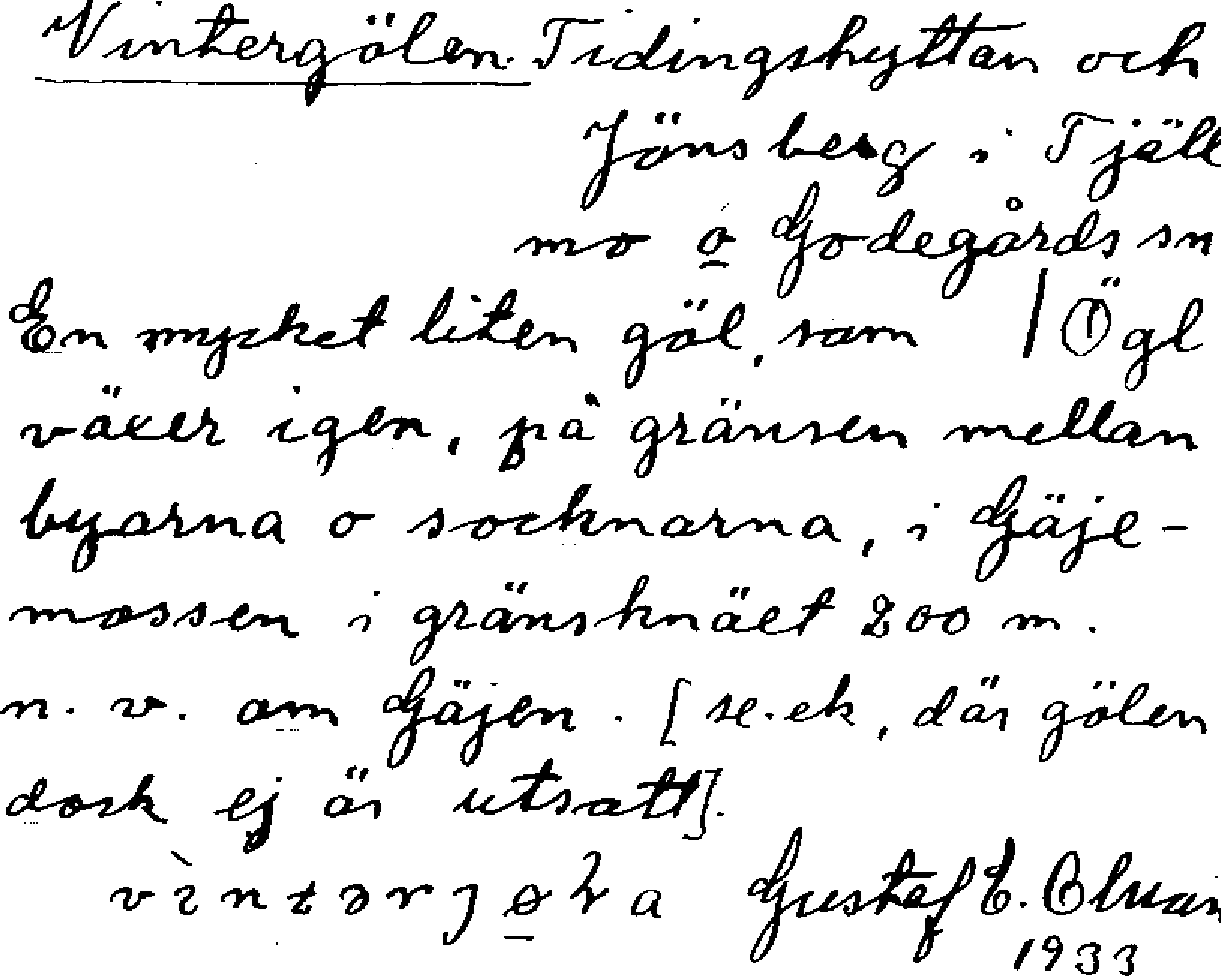 Vintergölen. Tidingshyttan och
Jönsberg i Tjäll
mo o Godegårds sn
En mycket liten göl, som | Ögl
växer igen, på gränsen mellan
byarna o socknarna, i Gäje-
mossen i gränsknäet 200 m.
n. v. om Gäjen. [se. ek, där gölen
dock ej är utsatt].
Gustaf E.
1933